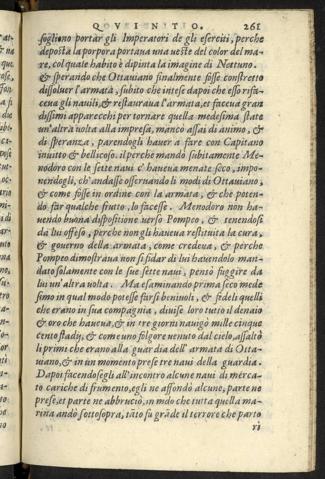 QVINTO. 261
sogliono portar gli Imperatori de gli eserciti, perche
deposta la porpora portaua una ueste del color del ma-
re, col quale habito è dipinta la imagine di Nettuno.
& sperando che Ottauiano finalmente fosse constretto
dissoluer l'armata, subito che intese dapoi che esso rifa-
ceua gli nauili, & restauraua l'armata, et faceua gran
dissimi apparecchi per tornare quella medesima state
un'altra uolta alla impresa, mancò assai di animo, &
di speranza, parendogli hauer a fare con Capitano
inuitto & bellicoso. il perche mandò subitamente Me-
nodoro con le sette naui c'haueua menate seco, impo-
nendogli, ch'andasse osseruando li modi di Ottauiano,
& come fosse in ordine con la armata, & che poten-
do far qualche frutto, lo facesse. Menodoro non ha-
uendo buona dispositione uerso Pompeo, & tenendosi
da lui offeso, perche non gli haueua restituita la cura,
& gouerno della armata, come credeua, & perche
Pompeo dimostraua non si fidar di lui hauendolo man-
dato solamente con le sue sette naui, pensò fuggire da
lui un'altra uolta. Ma esaminando prima seco mede
simo in qual modo potesse farsi beniuoli, & fideli quelli
che erano in sua compagnia, diuise loro tutto il denaio
& oro che haueua, & in tre giorni nauigò mille cinque
cento stadij, & come uno folgore uenuto dal cielo, assaltò
li primi che erano alla guardia dell'armata di Otta-
uiano, & in un momento prese tre naui della guardia.
Dapoi facendosegli all'incontro alcune naui di merca-
to cariche di frumento, egli ne affondò alcune, parte ne
prese, et parte ne abbruciò, in modo che tutta quella ma-
rina andò sottosopra, tāto fu grāde il terrore che parto
rì